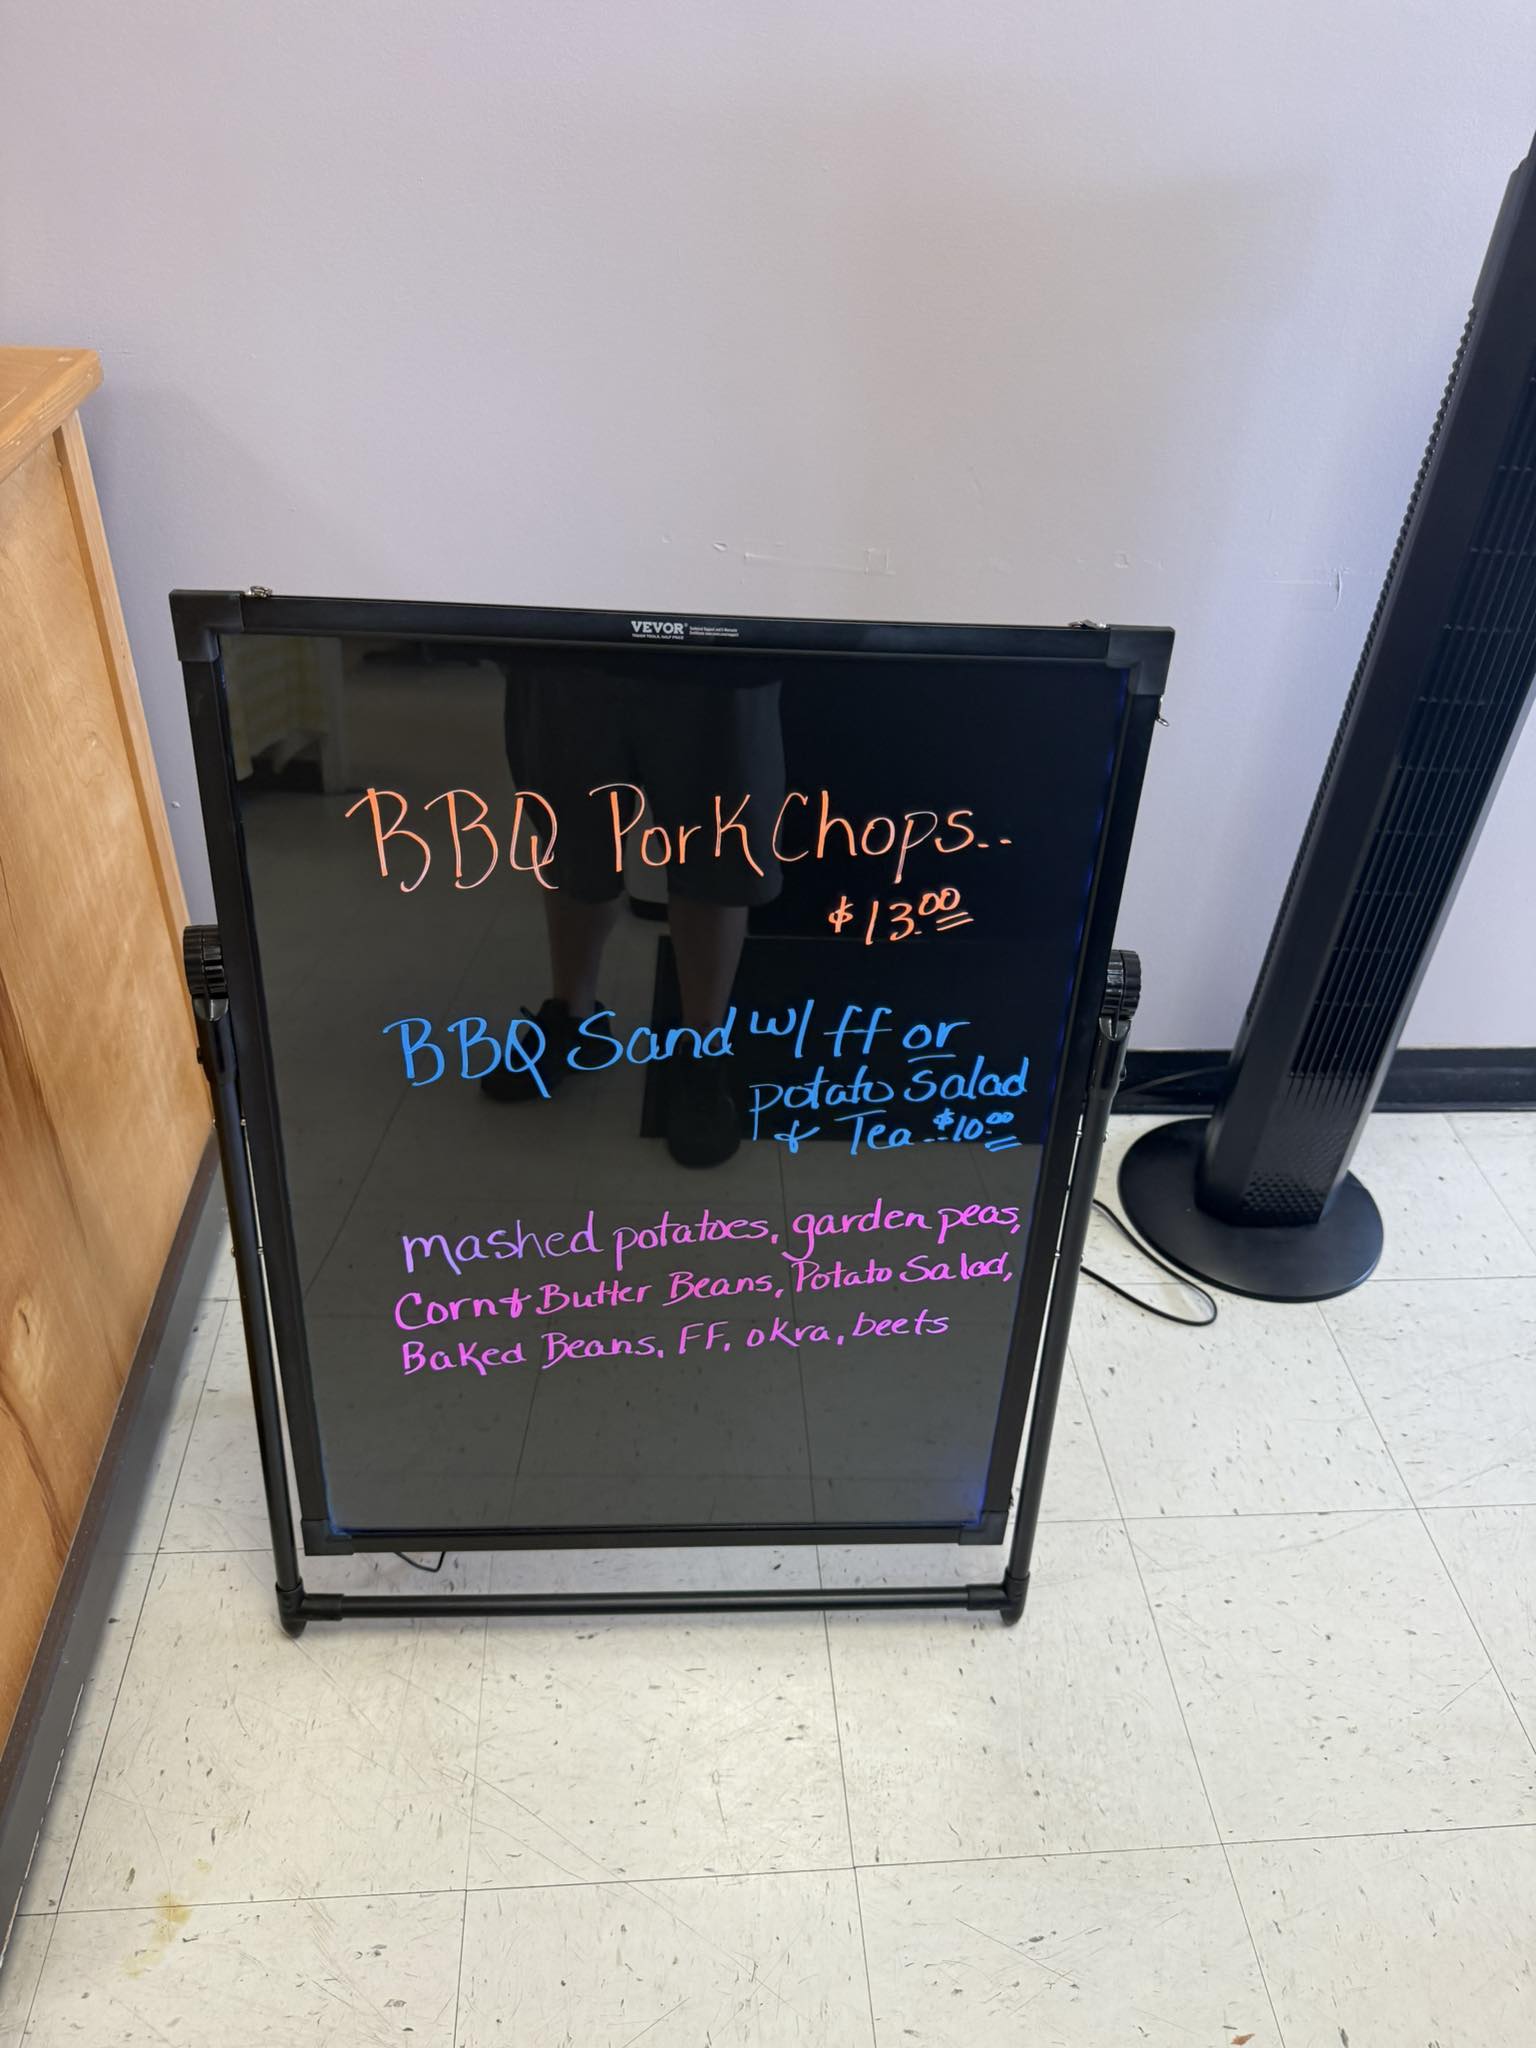 VEVOR
TOUGH TOOLS, HALF PRICE
BBQ Pork Chops..
$13.00
BBQ Sand w/ ff or
potato salad
& Tea..$10.00
mashed potatoes, garden peas,
Corn & Butter Beans, Potato Salad,
Baked Beans, FF, okra, beets